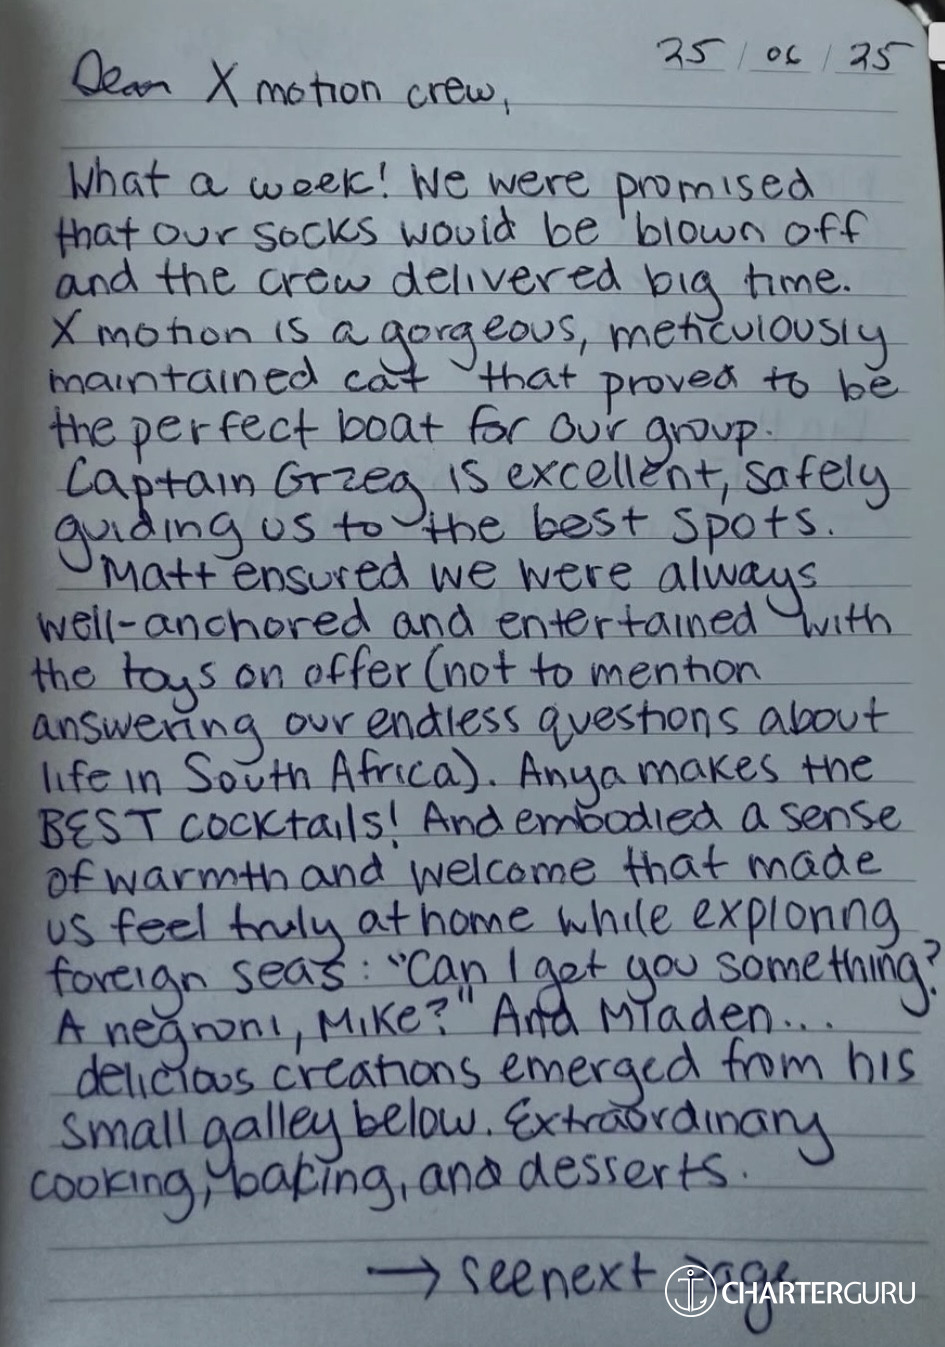 25 / 06 / 25
Dear X motion crew,
What a week! We were promised
that our socks would be blown off
and the crew delivered big time.
X motion is a gorgeous, meticulously
maintained cat that proved to be
the perfect boat for our group.
Captain Grzeg is excellent, safely
guiding us to the best spots.
Matt ensured we were always
well-anchored and entertained with
the toys on offer (not to mention
answering our endless questions about
life in South Africa). Anya makes the
BEST cocktails! And embodied a sense
of warmth and welcome that made
us feel truly at home while exploring
foreign seas: "Can I get you something?
A negroni, Mike?" And Mladen...
delicious creations emerged from his
small galley below. Extraordinary
cooking, baking, and desserts.
→ see next page
CHARTERGURU